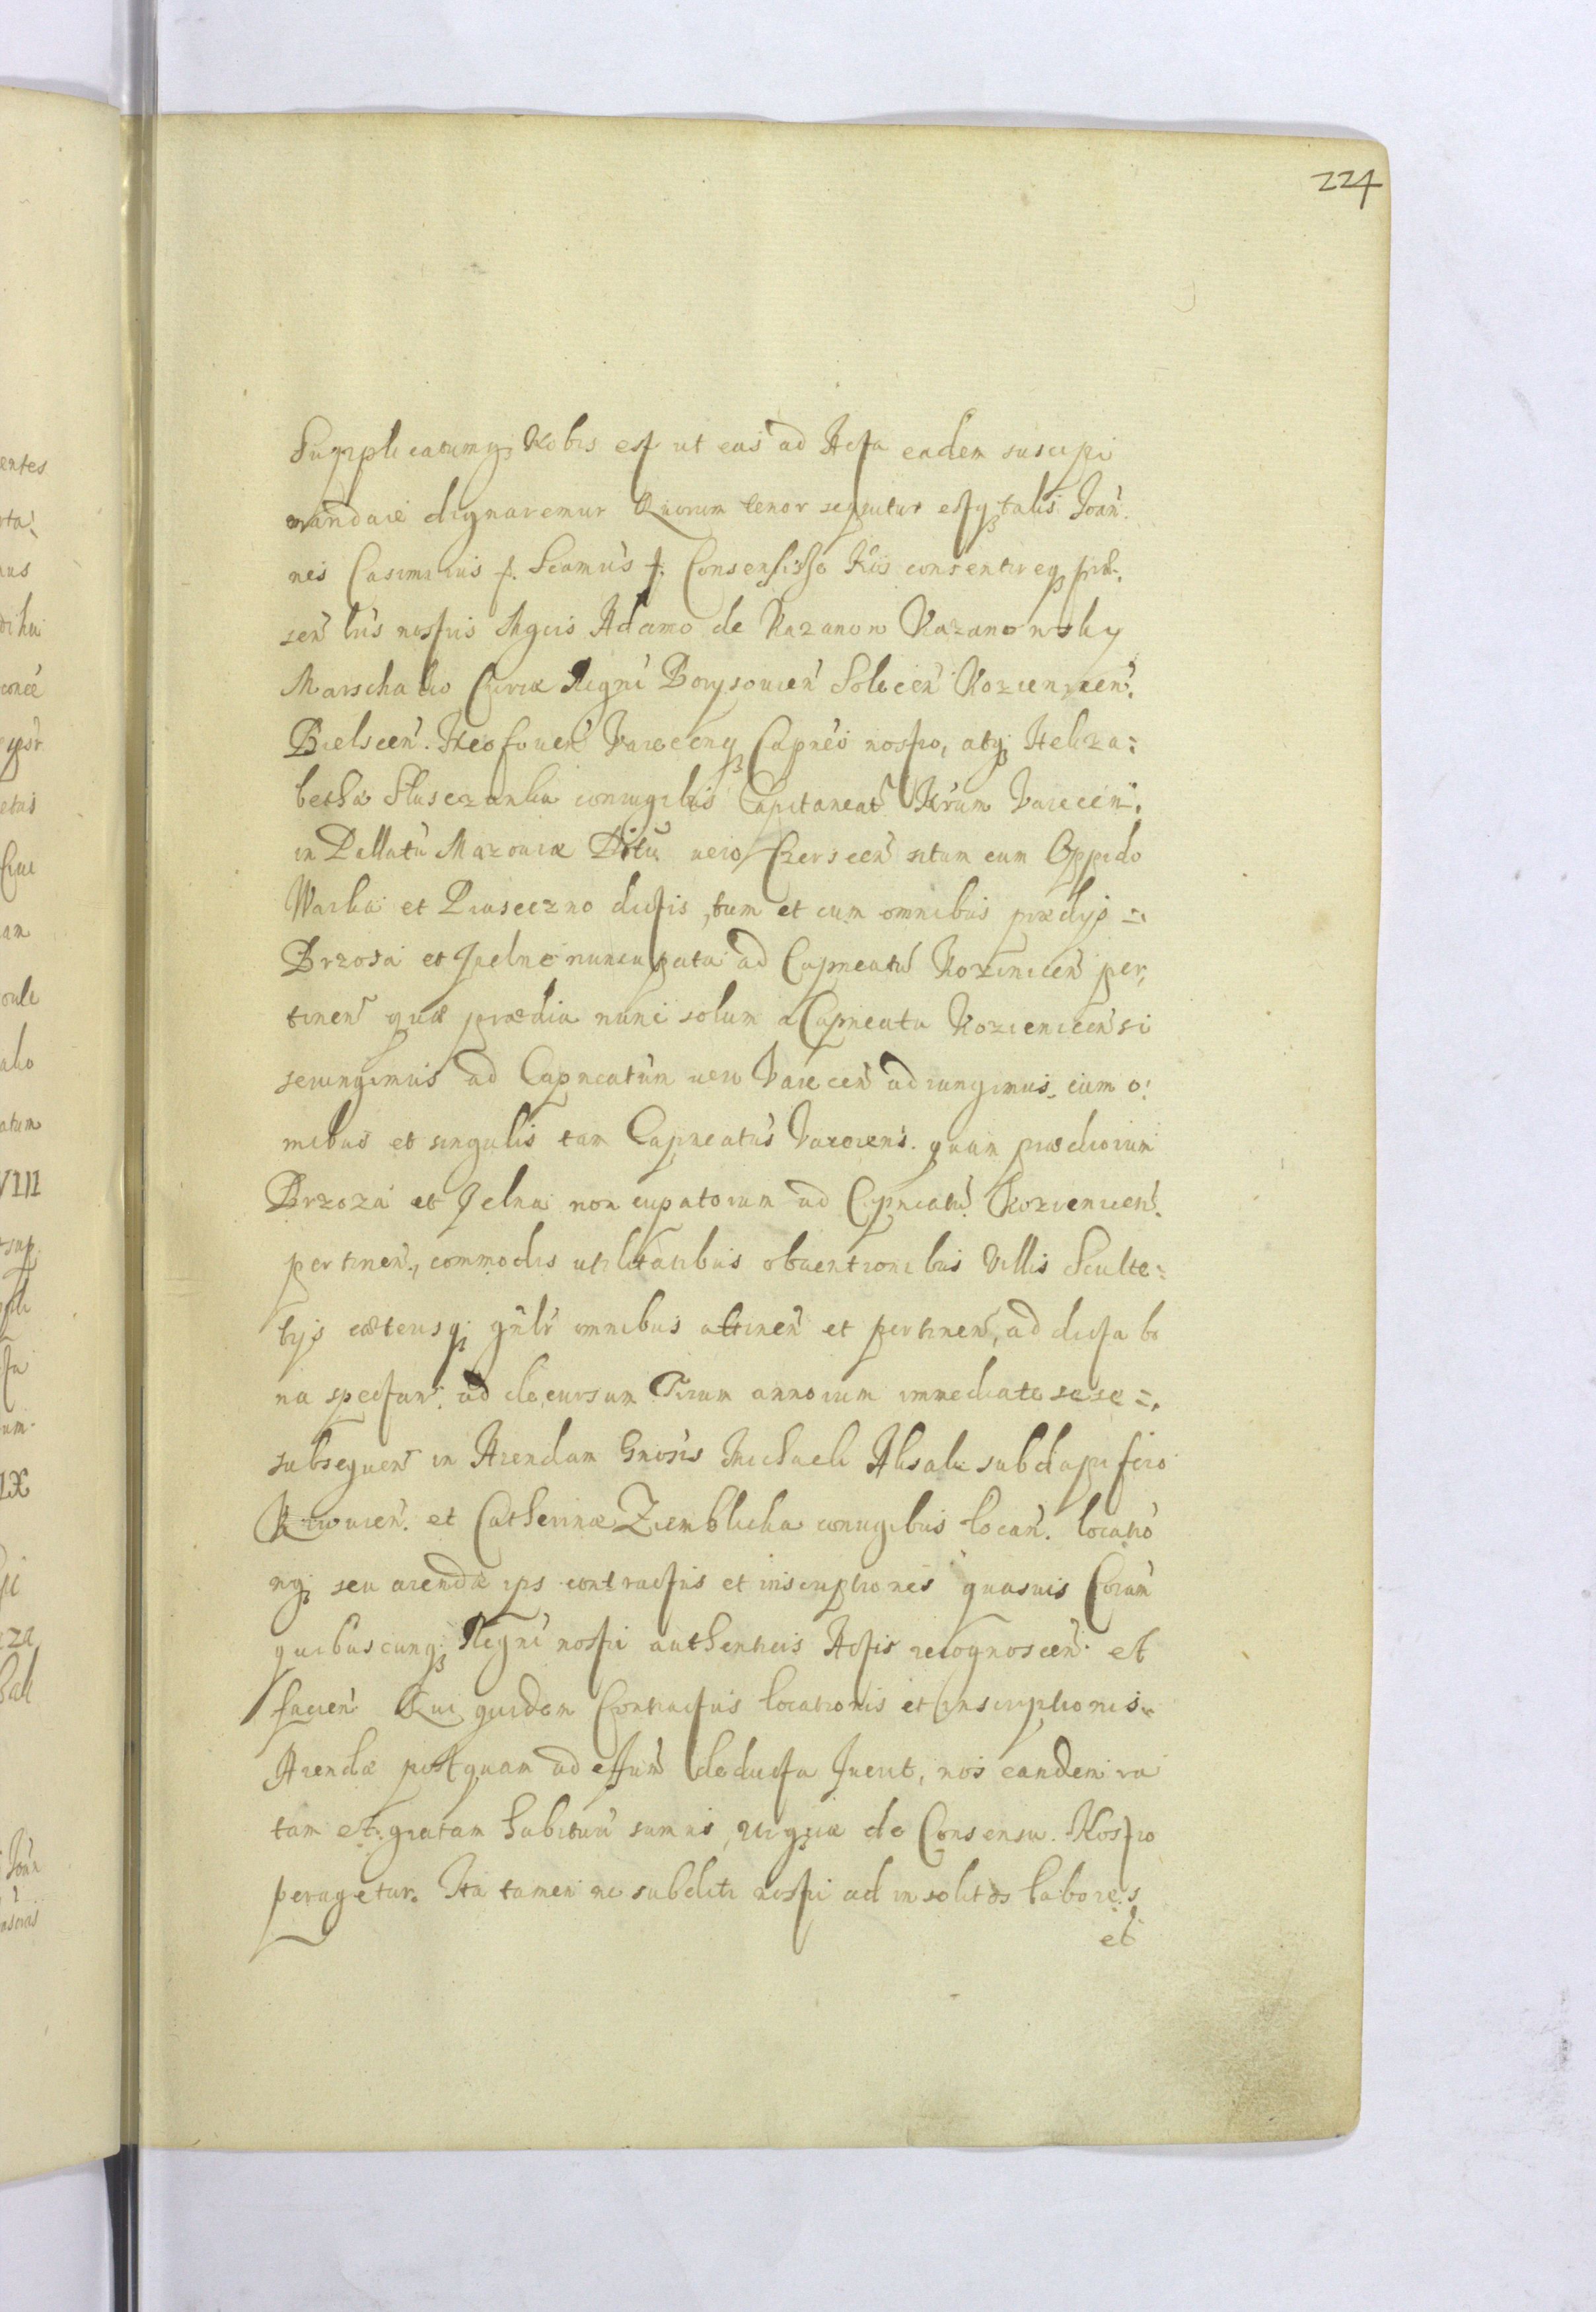 224
Supplicatumq; Nobis est ut eas ad Acta eadem suscipi
mandare dignaremur Quorum tenor sequitur estq; talis Joan.
nes Casimirus f. Scimus f. Consensisse Nos consentireq; præ.
sen lris nostris Mgcis Adamo de Kazanow Kazanowsky
Marschalco Curiæ Regni Borysouien Solecen Kozienicen.
Bielscen. Vareceñq; Capneo nostro, atq; Heliza=
betha Sluszanka coniugibus Capitaneat Nrum Varecen.
in Pallatu Mazouiæ Dittu uero Czerscen situm cum Oppido
Warka et Piaseczno dictis, tum et cum omnibus prædijs =
Brzosa et Jelne nuncupata ad Capneatu Kozinicen per,
tinen quæ prædia nunc solum a Capneatu Kozienicensi
seiungimus ad Capneatum uero Varecen adiungimus, cum o:
mnibus et singulis tam Capneatus Varecens. quam prædiorum
Brzoza et Jelna noncupatorum ad Capneatu Kozienicen.
pertinen., commodis utilitatibus obuentionibus Villis Sculte=
tijs cæterisq; gnlr omnibus attinen et pertinen, ad dicta bo
na spectan. ad decursum Trium annorum immediate sese =.
subsequen in Arendam Gnosis Michaeli Alisali subdapifero
Kiiouien. et Catherinæ Ziemblicka coniugibus locan. locatio
nq; seu arendæ ips contractus et inscriptiones quasuis Coram
quibuscunq; Regni nostri authenticis Actis recognoscen. et
facien Qui quidem Contractus locationis et inscriptionis
Arendæ postquam ad effum deducta fuerit, nos eandem ra
tam et gratam habituri sumus, utique de Consensu Nostro
peragetur. Ita tamen ne subditi nostri ad insolitos labores
et